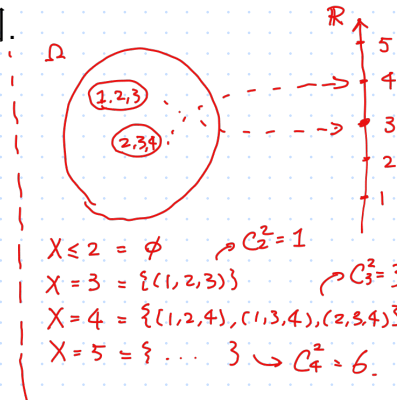 ].
Ω
ℝ
5
1,2,3
4
3
2,3,4
2
1
X ≤ 2 = ϕ
C₂² = 1
X = 3 = {(1,2,3)}
C₃² =
X = 4 = {(1,2,4),(1,3,4),(2,3,4)}
X = 5 = { . . . . } C₄² = 6.